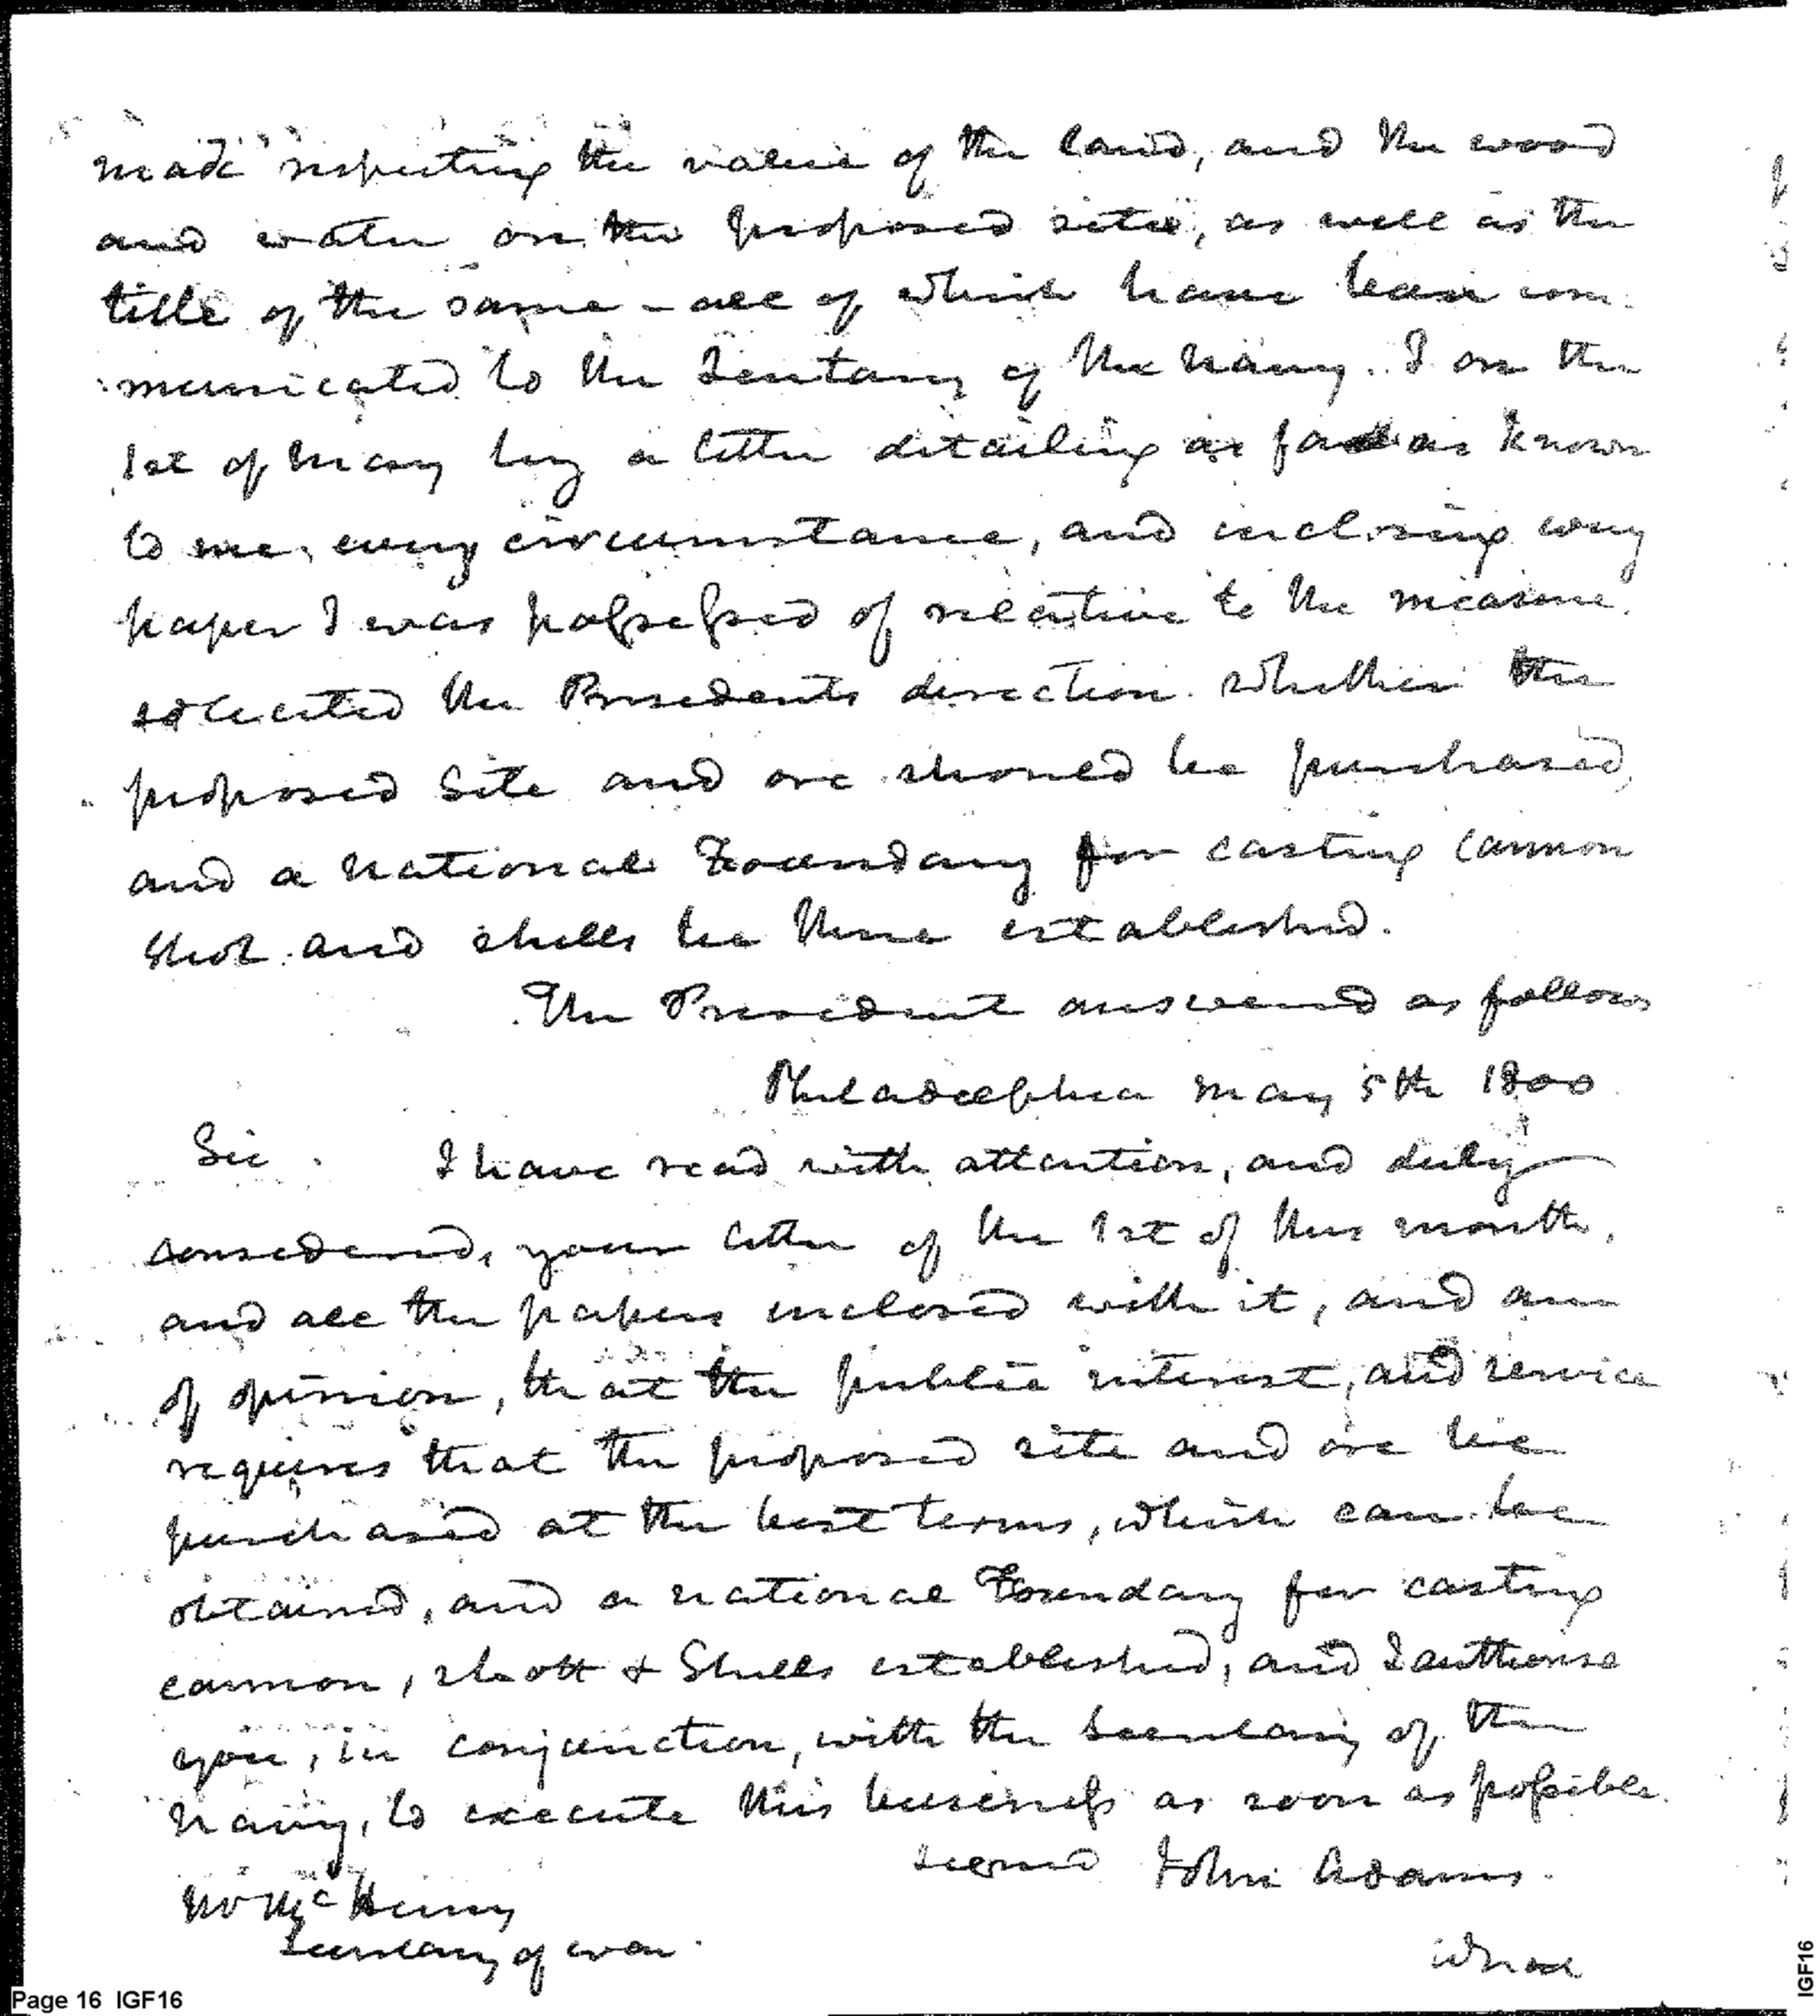 made respecting the value of the land, and the wood
and water on the proposed site, as well as the
title of the same - all of which have been com-
municated to the Secretary of the Navy. I on the
1st of May by a letter detailing as far as known
to me, every circumstance, and inclosing every
paper I was possessed of relative to the measure.
solicited the Presidents direction whether the
proposed Site and ore should be purchased,
and a national Foundary for casting cannon
shot and shells be there established.
The President answered as follows
Philadelphia May 5th 1800
Sir. I have read with attention, and duly
considered, your letter of the 1st of this month,
and all the papers inclosed with it, and am
of opinion, that the public interest, and service
requires that the proposed site and ore be
purchased at the best terms, which can be
obtained, and a national Foundary for casting
cannon, shott & Shells established, and I authorise
you, in conjunction, with the Secretary of the
Navy, to execute this business as soon as possible.
signed John Adams.
Mr McHenry
Secretary of war.
Page 16 IGF16
IGF16